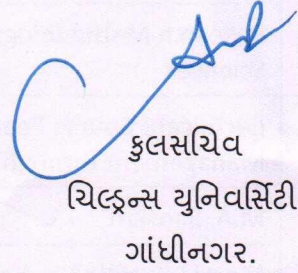 કુલસચિવ
ચિલ્ડ્રન્સ યુનિવર્સિટી
ગાંધીનગર.